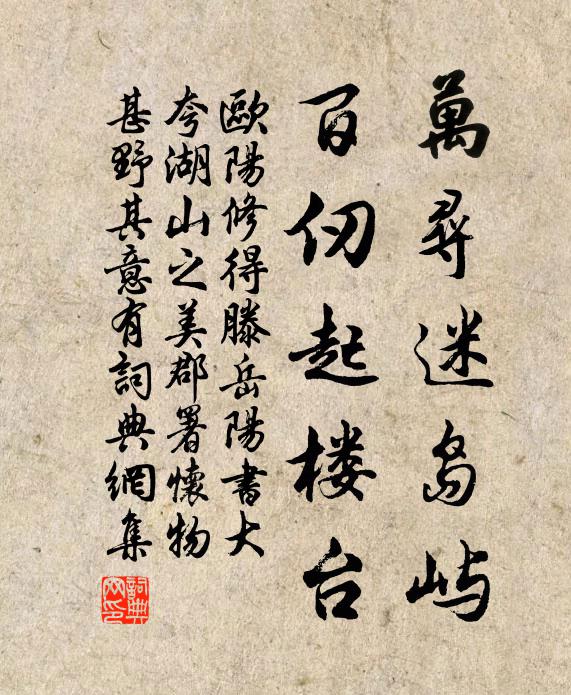 萬尋迷岛屿
百仞起楼台
歐陽修得滕岳陽書大
夸湖山之美郡署懷物
甚野其意有詞典網集